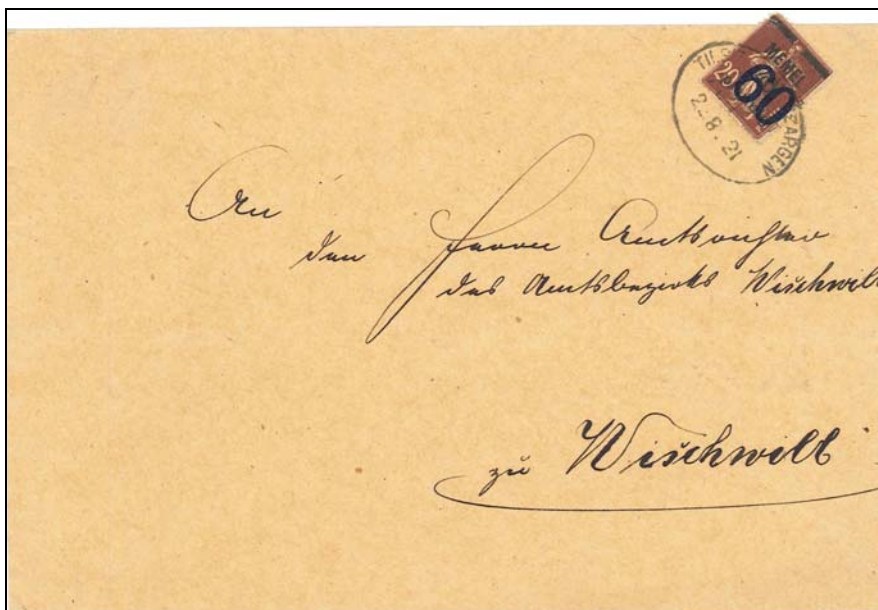 MEMEL
20
60
TILS EARGEN
2 8. 21
An
den Herrn Amtsrichter
des Amtsbezirks Wischwill
zu Wischwill